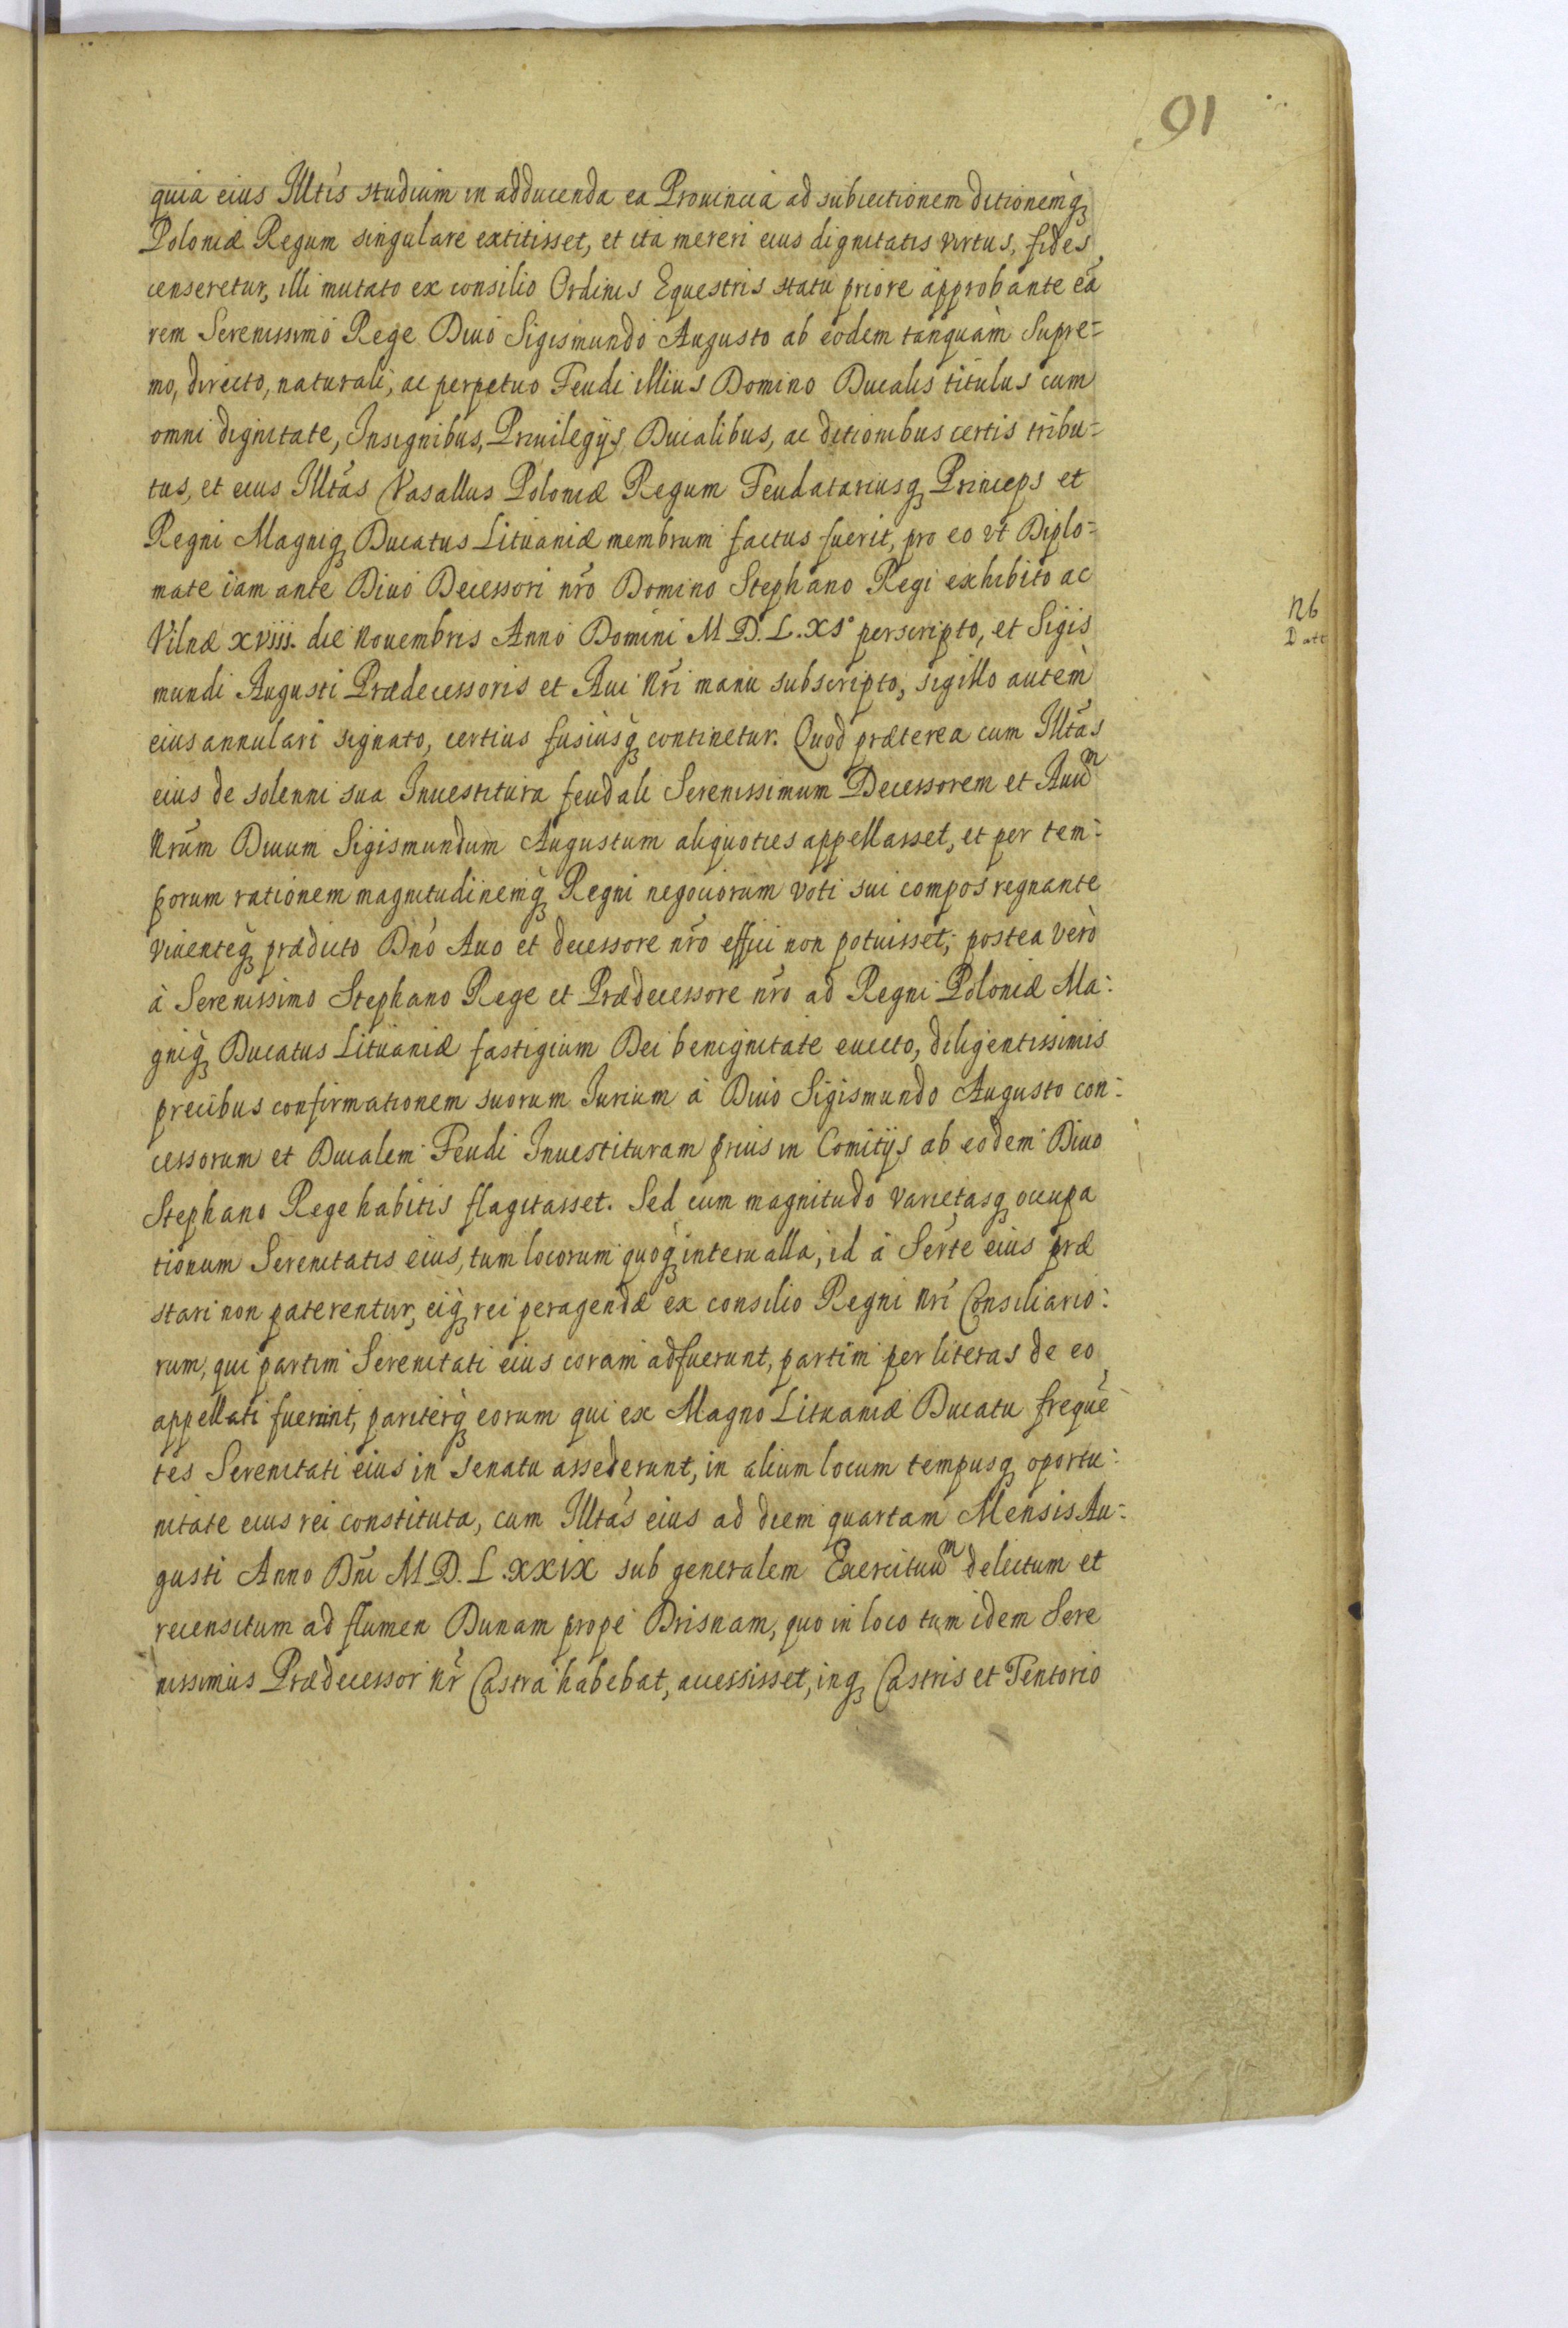 91
quia eius Illtis studium in adducenda ea Prouincia ad subiectionem ditionemq́ꝫ
Poloniæ Regum singulare extitisset, et ita mereri eius dignitatis virtus, fides
censeretur, illi mutato ex consilio Ordinis Equestris statu priore approbante eã
rem Serenissimo Rege Diuo Sigismundo Augusto ab eodem tanquàm Supre=
mo, directo, naturali, ac perpetuo Feudi illius Domino Ducalis titulus cum
omni dignitate, Insignibus, Priuilegijs Ducalibus, ac ditionibus certis tribu=
tus, et eius Illtãs Vasallus Poloniæ Regum Feudatariusqꝫ Princeps et
Regni Magniqꝫ Ducatus Lituaniæ membrum factus fuerit, pro eo vt Diplo=
mate iam ante Diuo Decessori nrõ Domino Stephano Regi exhibito ac
Nb
Vilnæ xviii. die Nouembris Anno Domini M D. L. XI° perscripto, et Sigis
Datt
mundi Augusti Prædecessoris et Aui Nrĩ manu subscripto, sigillo autem
eius annulari signato, certius fusiùsqꝫ continetur. Quod præterea cum Illtãs
eius de solenni sua Inuestitura feudali Serenissimum Decessorem et Auũm
Nrũm Diuum Sigismundum Augustum aliquoties appellasset, et per tem=
porum rationem magnitudinemq́ꝫ Regni negociorum voti sui compos regnante
viuenteq́ꝫ prædicto Dnõ Auo et decessore nrõ effici non potuisset, postea verò
à Serenissimo Stephano Rege et Prædecessore nrõ ad Regni Poloniæ Ma=
gniq́ꝫ Ducatus Lituaniæ fastigium Dei benignitate euecto, diligentissimis
precibus confirmationem suorum Iurium à Diuo Sigismundo Augusto con=
cessorum et Ducalem Feudi Inuestituram prius in Comitijs ab eodem Diuo
Stephano Rege habitis flagitasset. Sed cum magnitudo varietasqꝫ occupa
tionum Serenitatis eius, tum locorum quoq́ꝫ interualla, id à Serte eius præ
stari non paterentur, eiq́ꝫ rei peragendæ ex consilio Regni Nrĩ Consiliario=
rum, qui partim Serenitati eius coram adfuerunt, partim per literas de eo
appellati fuerunt, pariterq́ꝫ eorum qui ex Magno Lituaniæ Ducatu frequẽ
tes Serenitati eius in Senatu assederunt, in alium locum tempusqꝫ oportu=
nitate eius rei constituta, cum Illtãs eius ad diem quartam Mensis Au=
gusti Anno Dnĩ M D. L. XXIX sub generalem Exercituũm delectum et
recensitum ad flumen Dunam prope Drisnam, quo in loco tum idem Sere
nissimus Prædecessor Nr̃ Castra habebat, accessisset, inqꝫ Castris et Tentorio